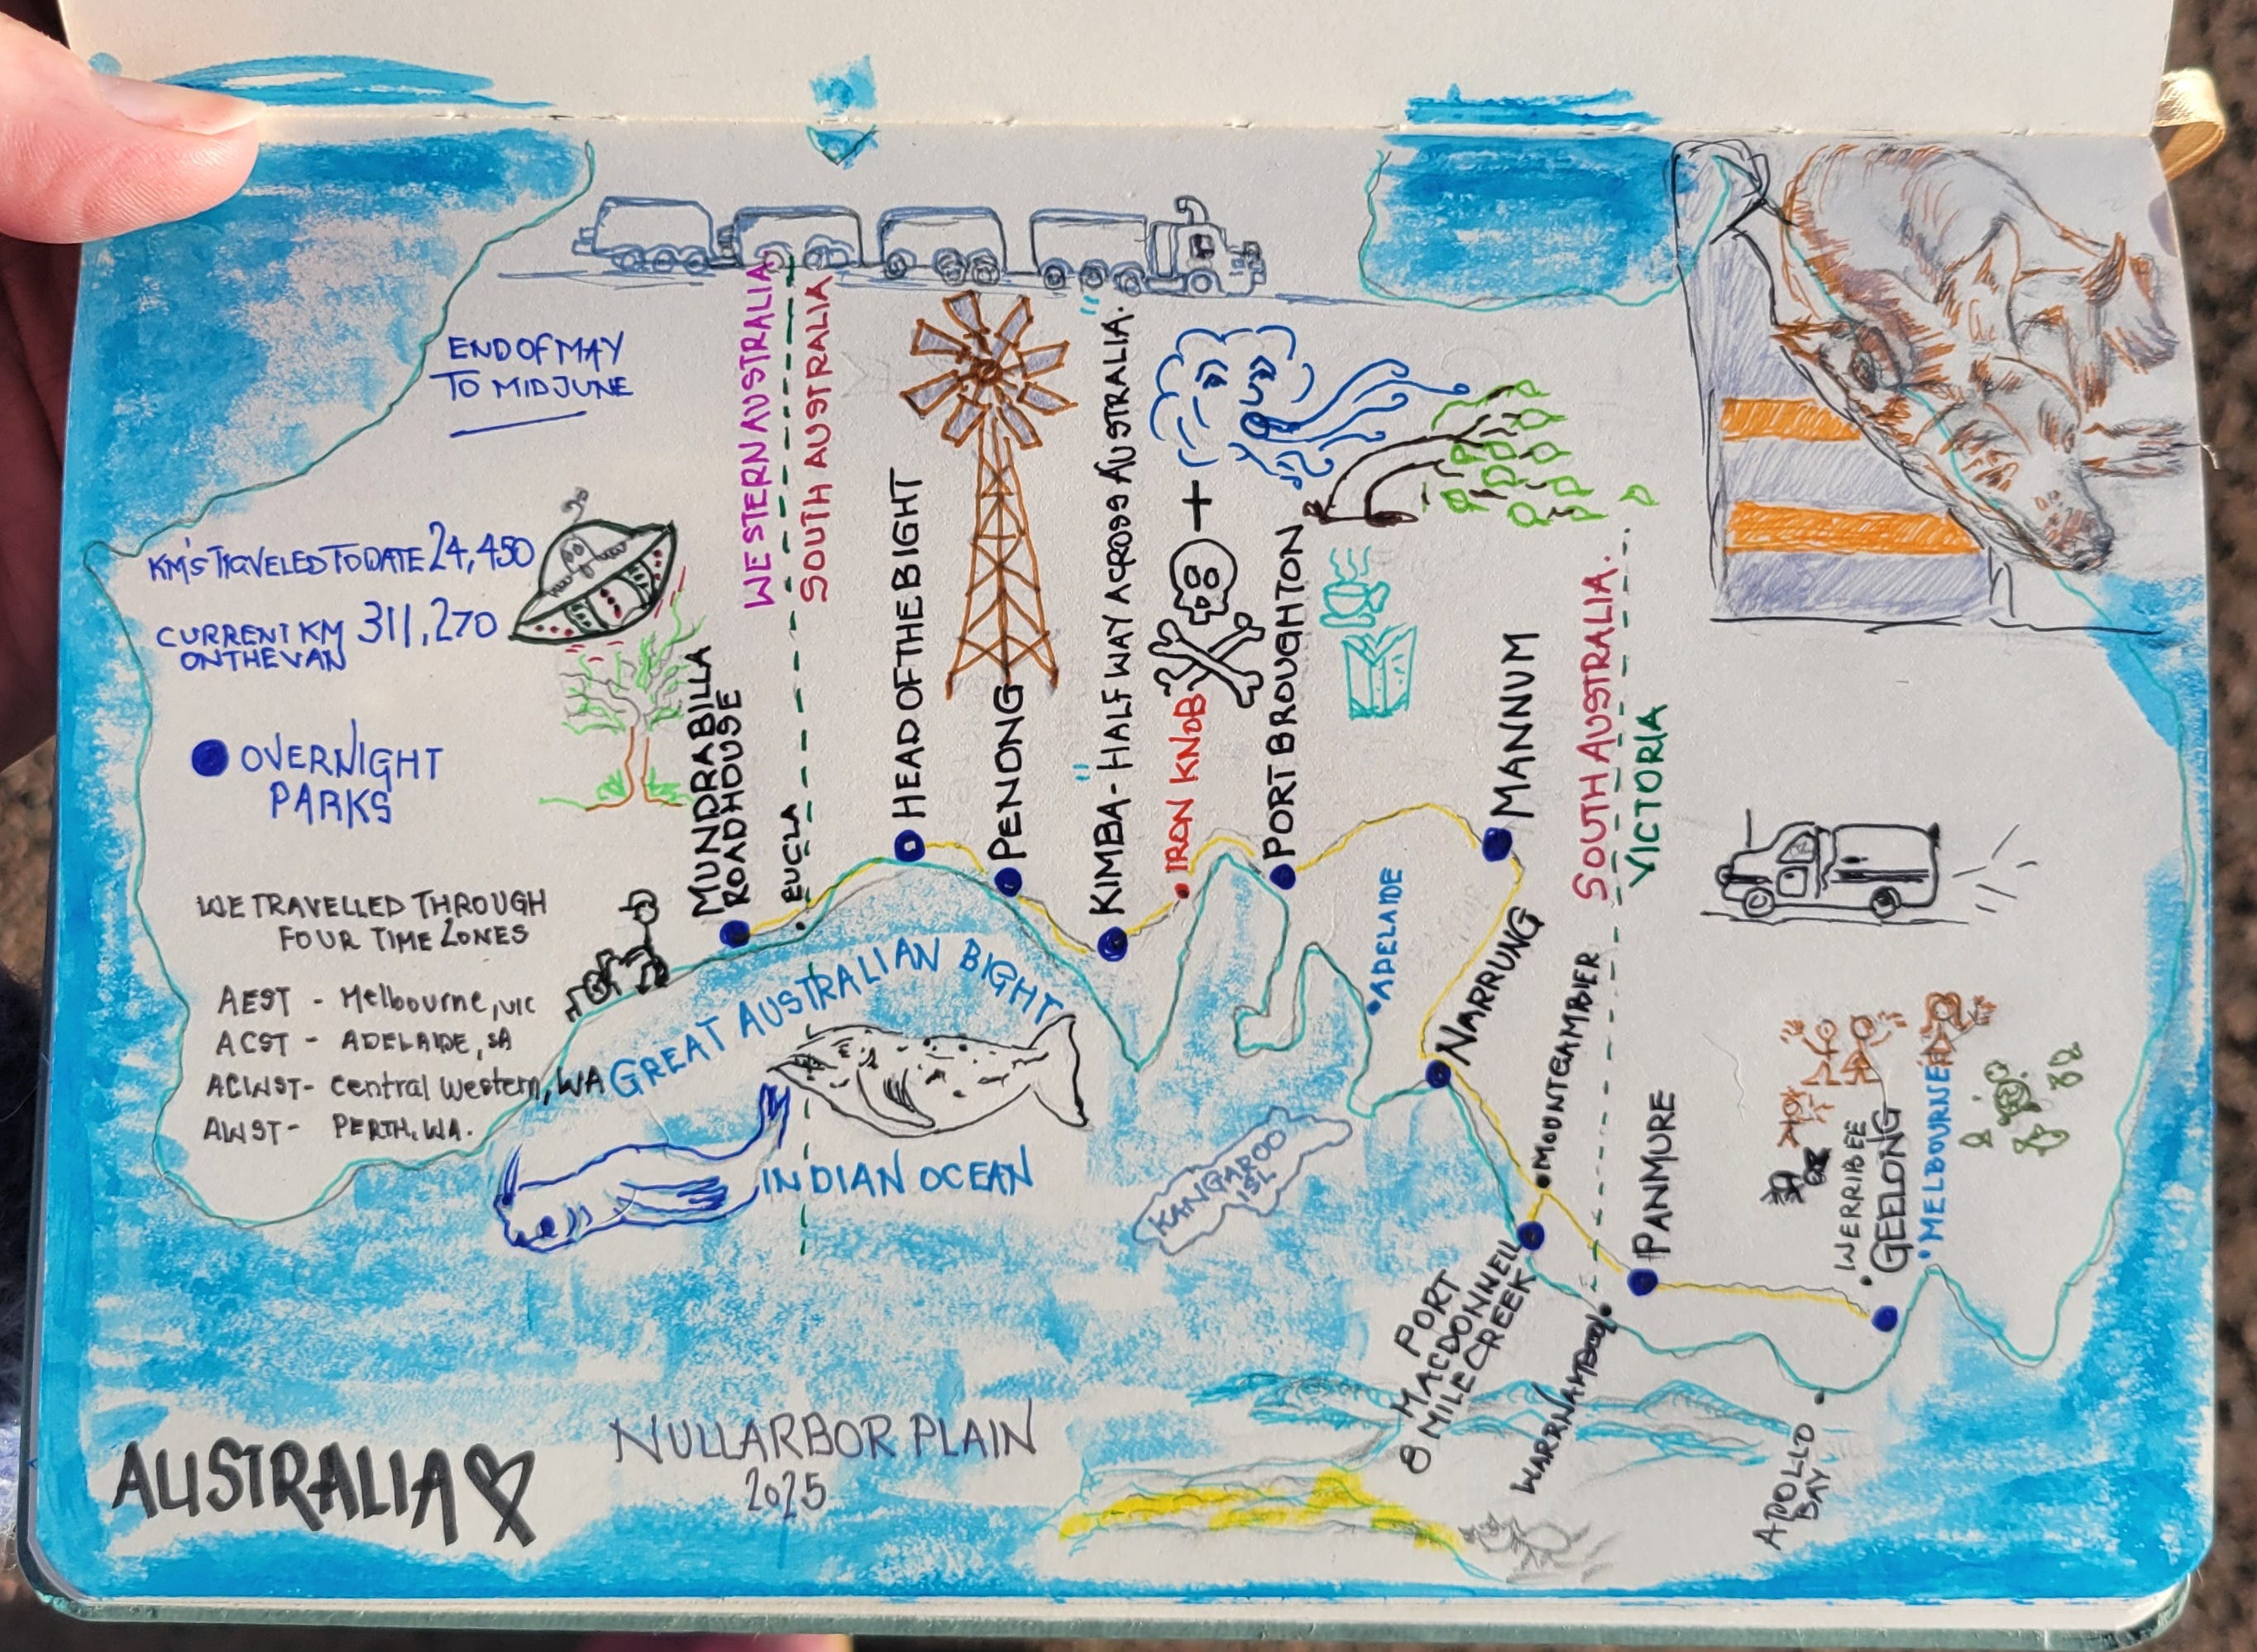 END OF MAY
TO MID JUNE
KM'S TRAVELED TO DATE 24,450
CURRENT KM 311,270
ON THE VAN
OVERNIGHT
PARKS
WE TRAVELLED THROUGH
FOUR TIME ZONES
AEST - Melbourne, VIC
ACST - ADELAIDE, SA
ACWST - Central Western, WA
AWST - PERTH, WA.
WESTERN AUSTRALIA
SOUTH AUSTRALIA
MUNDRABILLA
ROADHOUSE
EUCLA
HEAD OF THE BIGHT
PENONG
KIMBA - "HALF WAY ACROSS AUSTRALIA."
IRON KNOB
PORT BROUGHTON
ADELAIDE
MANNUM
NARRUNG
SOUTH AUSTRALIA.
VICTORIA
MOUNT GAMBIER
PORT
MACDONNELL
8 MILE CREEK
PANMURE
WARRNAMBOOL
WERRIBEE
GEELONG
MELBOURNE
APOLLO
BAY
GREAT AUSTRALIAN BIGHT
INDIAN OCEAN
KANGAROO
ISL
AUSTRALIA
NULLARBOR PLAIN
2025